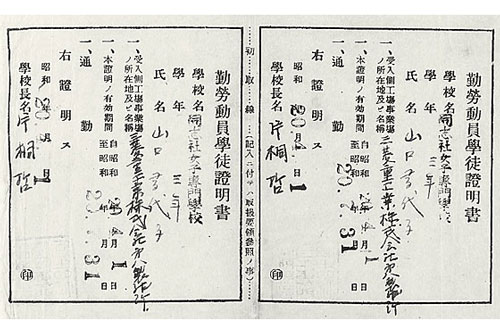 勤勞動員學徒證明書
學校名 同志社女子專門學校
學年 三年
氏名 山口
一、受入側工場事業場
ノ所在地及ビ名稱 三菱重工業株式会社
一、本證明ノ有效期間 自昭和 年 月1日
至昭和20年7月31日
一、通勤
右證明ス
昭和20年4月1日
學校長名 片桐哲
印
切取線 (記入ニ付テハ取扱要領參照ノ事)
勤勞動員學徒證明書
學校名 同志社女子專門學校
學年 三年
氏名 山口
一、受入側工場事業場
ノ所在地及ビ名稱 三菱重工業株式会社
一、本證明ノ有效期間 自昭和 年 月1日
至昭和20年7月31日
一、通勤
右證明ス
昭和20年4月1日
學校長名 片桐哲
印